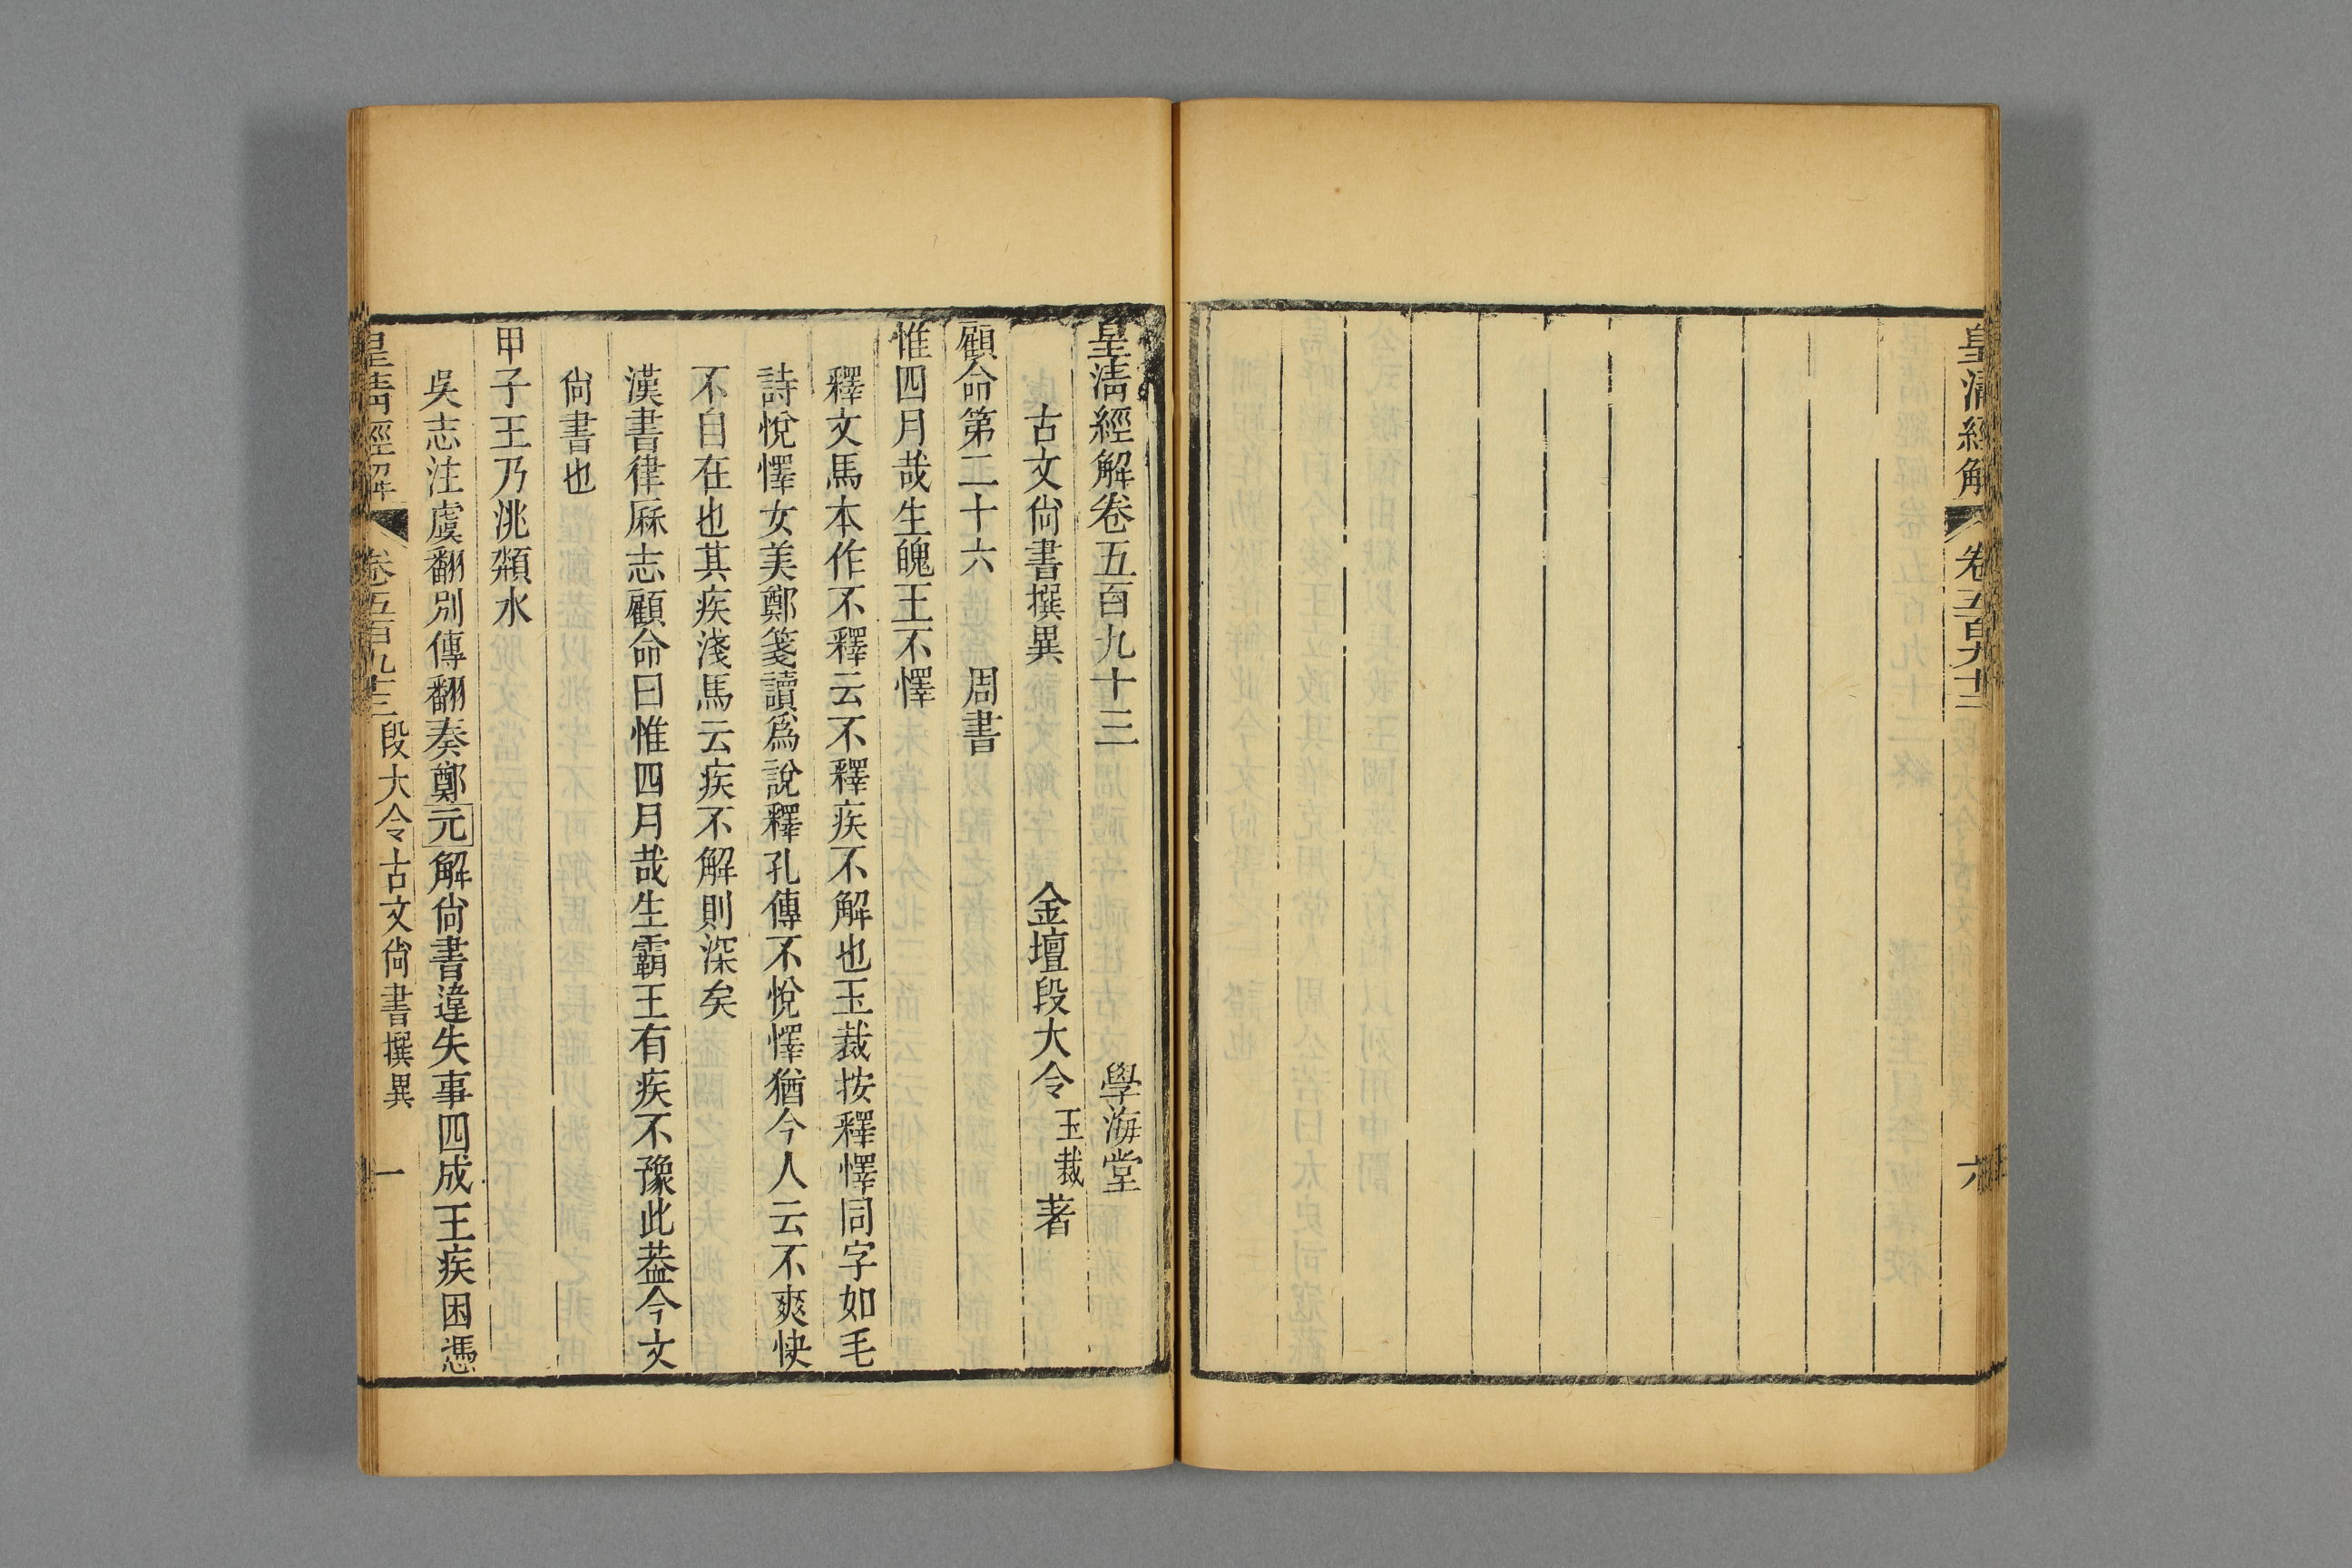 皇清經解 卷五百九十二 六
皇清經解卷五百九十三 學海堂
古文尙書撰異 金壇段大令玉裁著
顧命第二十六 周書
惟四月哉生魄王不懌
釋文馬本作不釋云不釋疾不解也玉裁按釋懌同字如毛
詩悅懌女美鄭箋讀爲說釋孔傳不悅懌猶今人云不爽快
不自在也其疾淺馬云疾不解則深矣
漢書律厤志顧命曰惟四月哉生霸王有疾不豫此葢今文
尙書也
甲子王乃洮頮水
吳志注虞翻別傳翻奏鄭元解尙書違失事四成王疾困憑
皇淸經解 卷五百九十三 段大令古文尙書撰異 一